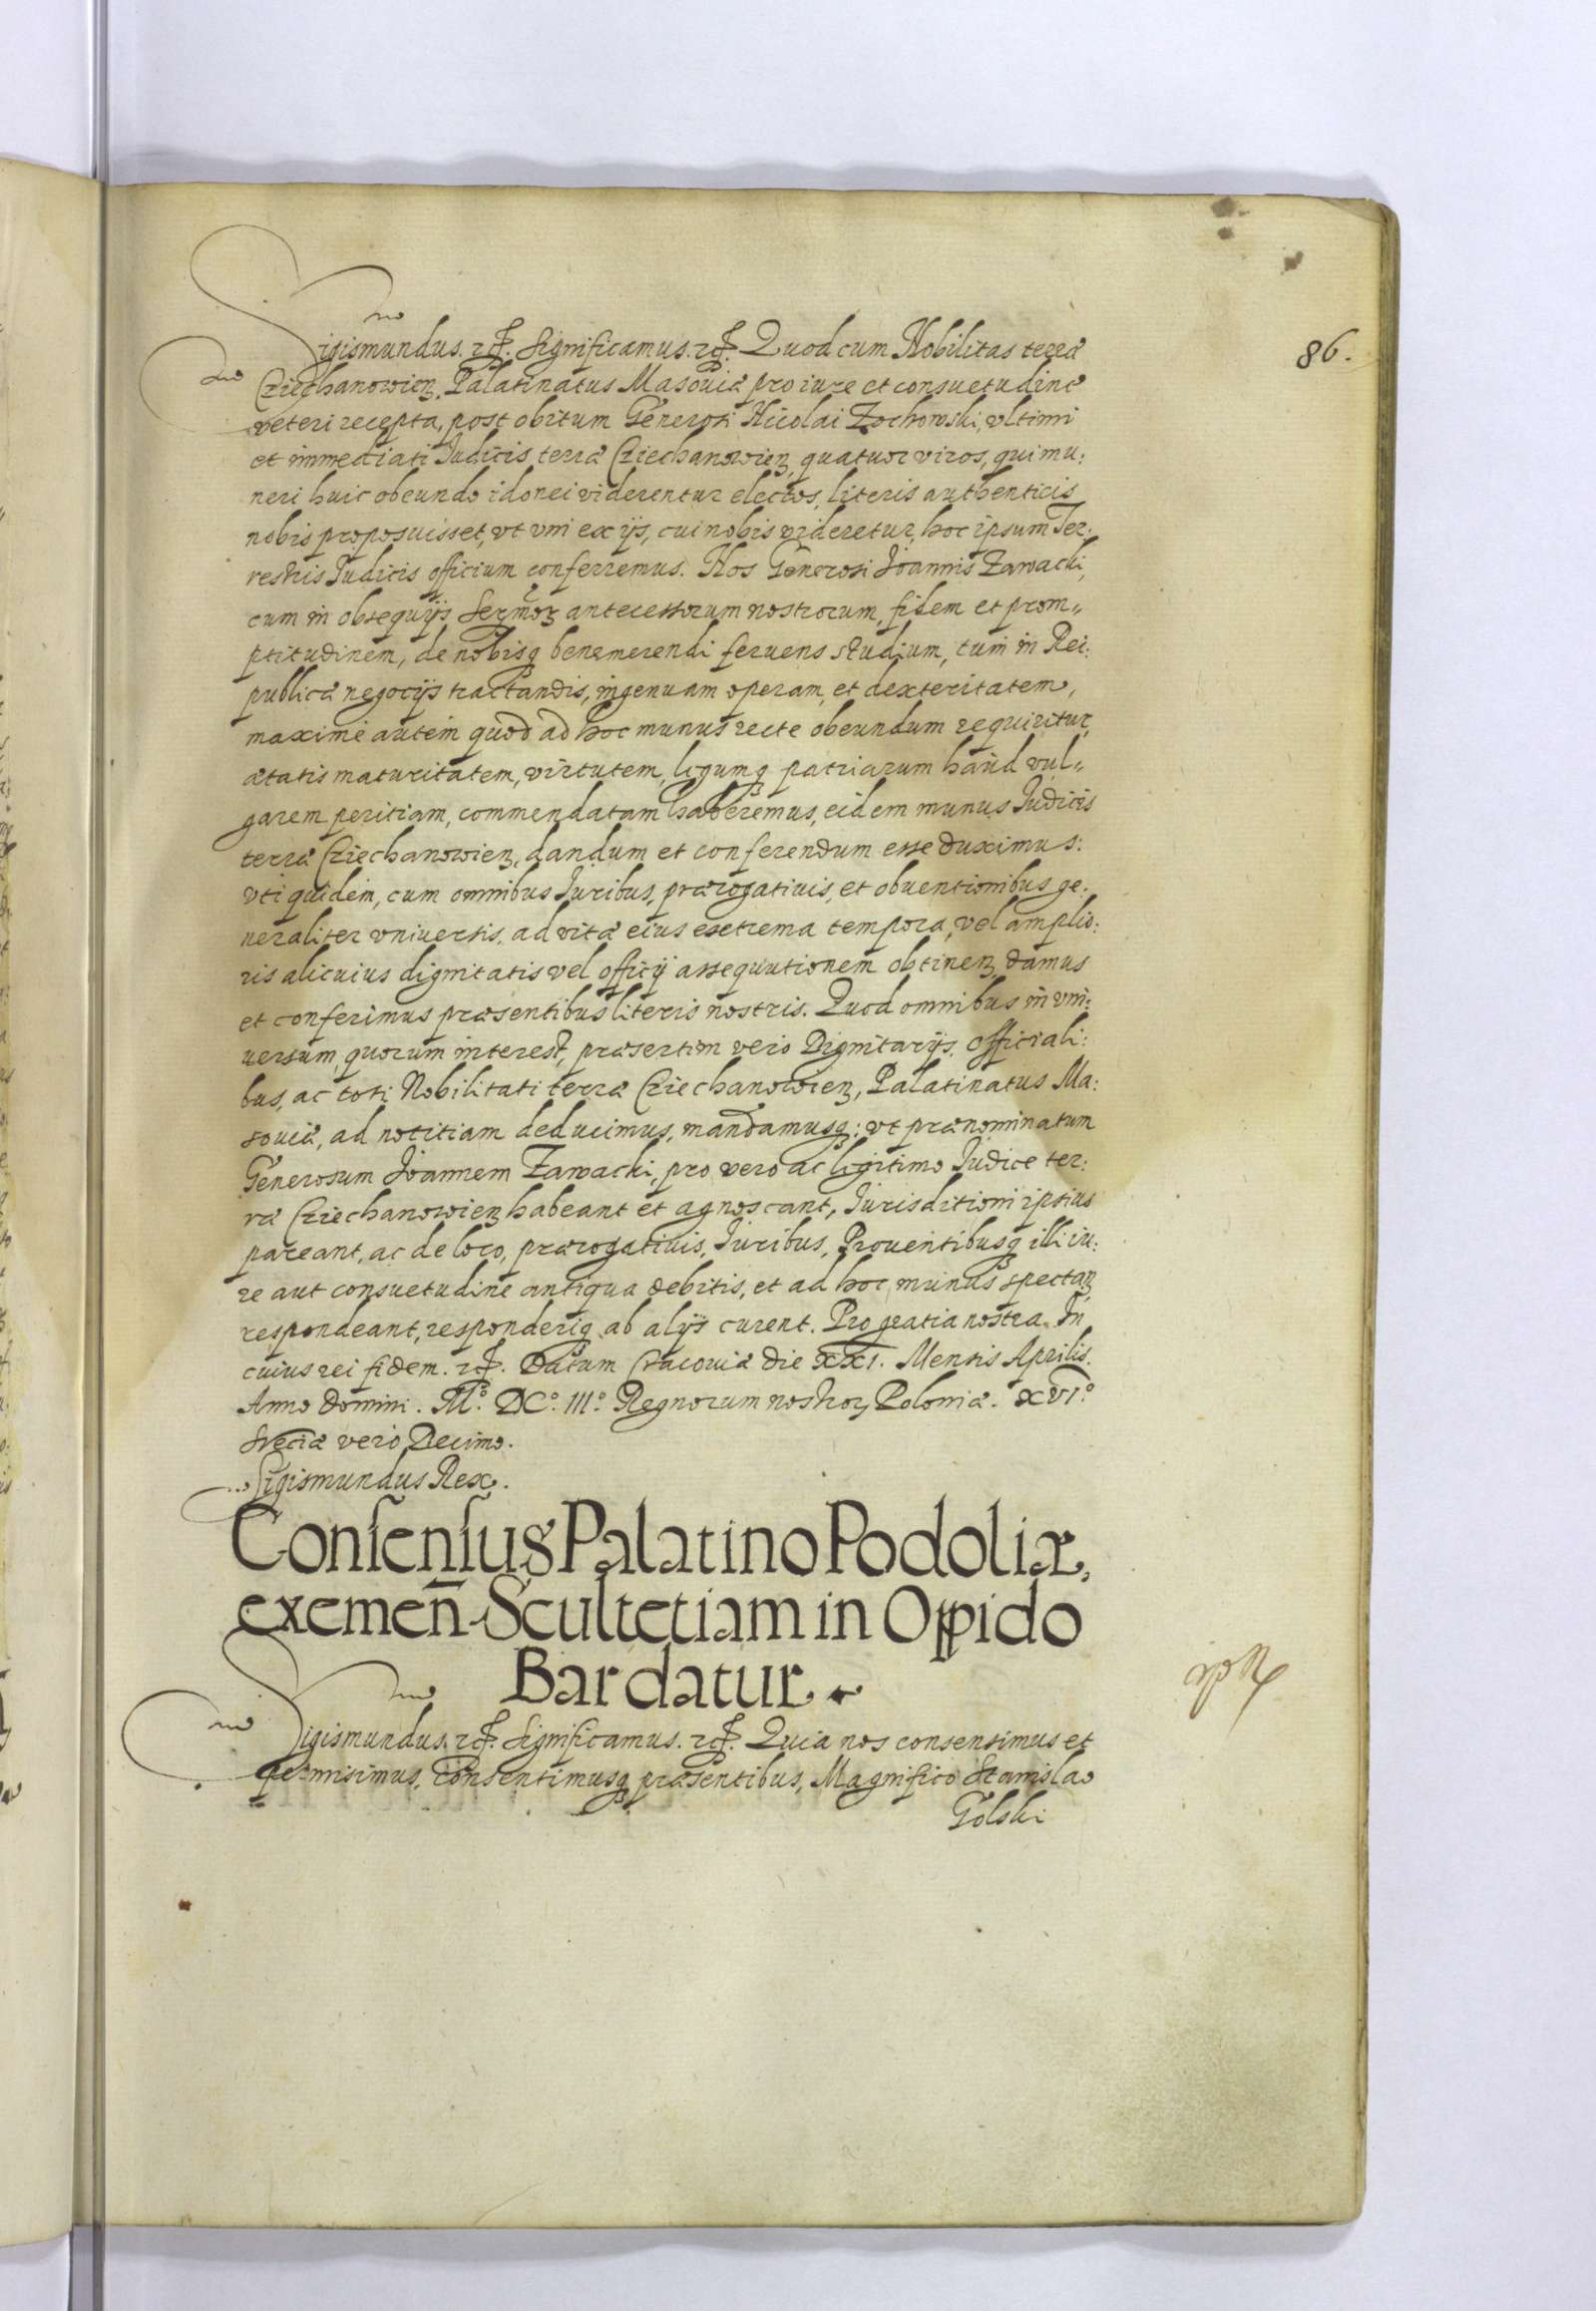 86.
Sigismundus. etc. Significamus. etc. Quod cum Nobilitas terræ
Cziechanowien. Palatinatus Masouiæ pro iure et consuetudine
veteri recepta, post obitum Generosi Nicolai Zochowski, vltimi
et immediati Judicis terræ Cziechanowien, quatuor viros, qui mu:
neri huic obeundo idonei viderentur electos, literis authenticis
nobis proposuisset, vt vni ex ijs, cui nobis videretur, hoc ipsum Ter:
restris Judicis officium conferremus. Nos Generosi Joannis Zawacki,
cum in obsequijs Sermor antecessorum nostrorum, fidem et prom„
ptitudinem, de nobisq benemerendi feruens studium, tum in Rei:
publicæ negocijs tractandis, ingenuam operam, et dexteritatem,
maxime autem quod ad hoc munus recte obeundum requiritur,
ætatis maturitatem, virtutem, legumq patriarum haud vul„
garem peritiam, commendatam haberemus, eidem munus Judicis
terræ Cziechanowien, dandum et conferendum esse duximus:
vti quidem, cum omnibus Juribus, prærogatiuis, et obuentionibus ge.
neraliter vniuersis, ad vitæ eius extrema tempora, vel amplio:
ris alicuius dignitatis vel officij assequutionem obtinen damus
et conferimus præsentibus literis nostris. Quod omnibus in vni:
uersum, quorum interest, præsertim vero Dignitarijs, Officiali:
bus, ac toti Nobilitati terræ Cziechanowien, Palatinatus Ma:
souiæ, ad notitiam deducimus, mandamusq: vt prænominatum
Generosum Joannem Zawacki, pro vero ac legitimo Judice ter:
ræ Cziechanowien habeant et agnoscant, Jurisditioni ipsius
pareant, ac de loco, prærogatiuis, Juribus, Prouentibusq illi iu:
re aut consuetudine antiqua debitis, et ad hoc munus spectan
respondeant, responderiq ab alijs curent. Pro gratia nostra. In
cuius rei fidem. etc. Datum Cracouiæ die XXI. Mensis Aprilis.
Anno Domini. Mº. DCº. IIIº. Regnorum nostror Poloniæ. XVIº
Sveciæ vero Decimo.
Sigismundus Rex.
Consensus Palatino Podoliæ,
exemen̄ Scultetiam in Oppido
Bar datur.
Sigismundus. etc. Significamus. etc. Quia nos consensimus et
permisimus, Consentimusq præsentibus, Magnifico Stanislao
Golski